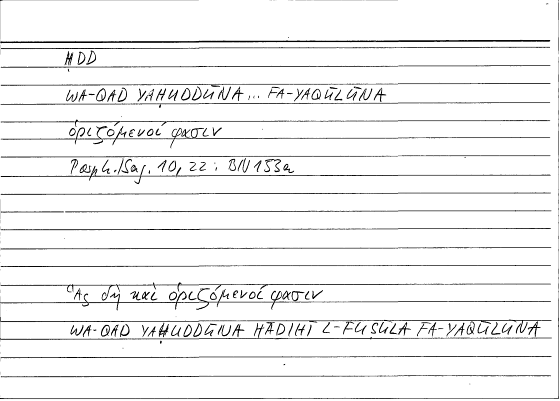 ḤDD
WA-QAD YAḤUDDŪNA... FA-YAQŪLŪNA
ὁριζόμενοί φασιν
Porph./Isag. 10, 22: BN 153a
Ἃς δὴ καὶ ὁριζόμενοί φασιν
WA-QAD YAḤUDDŪNA HĀḎIHĪ L-FUṢŪLA FA-YAQŪLŪNA